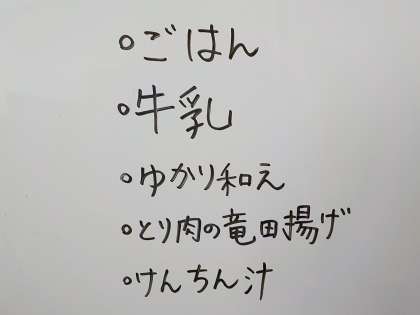 ○ごはん
○牛乳
○ゆかり和え
○とり肉の竜田揚げ
○けんちん汁